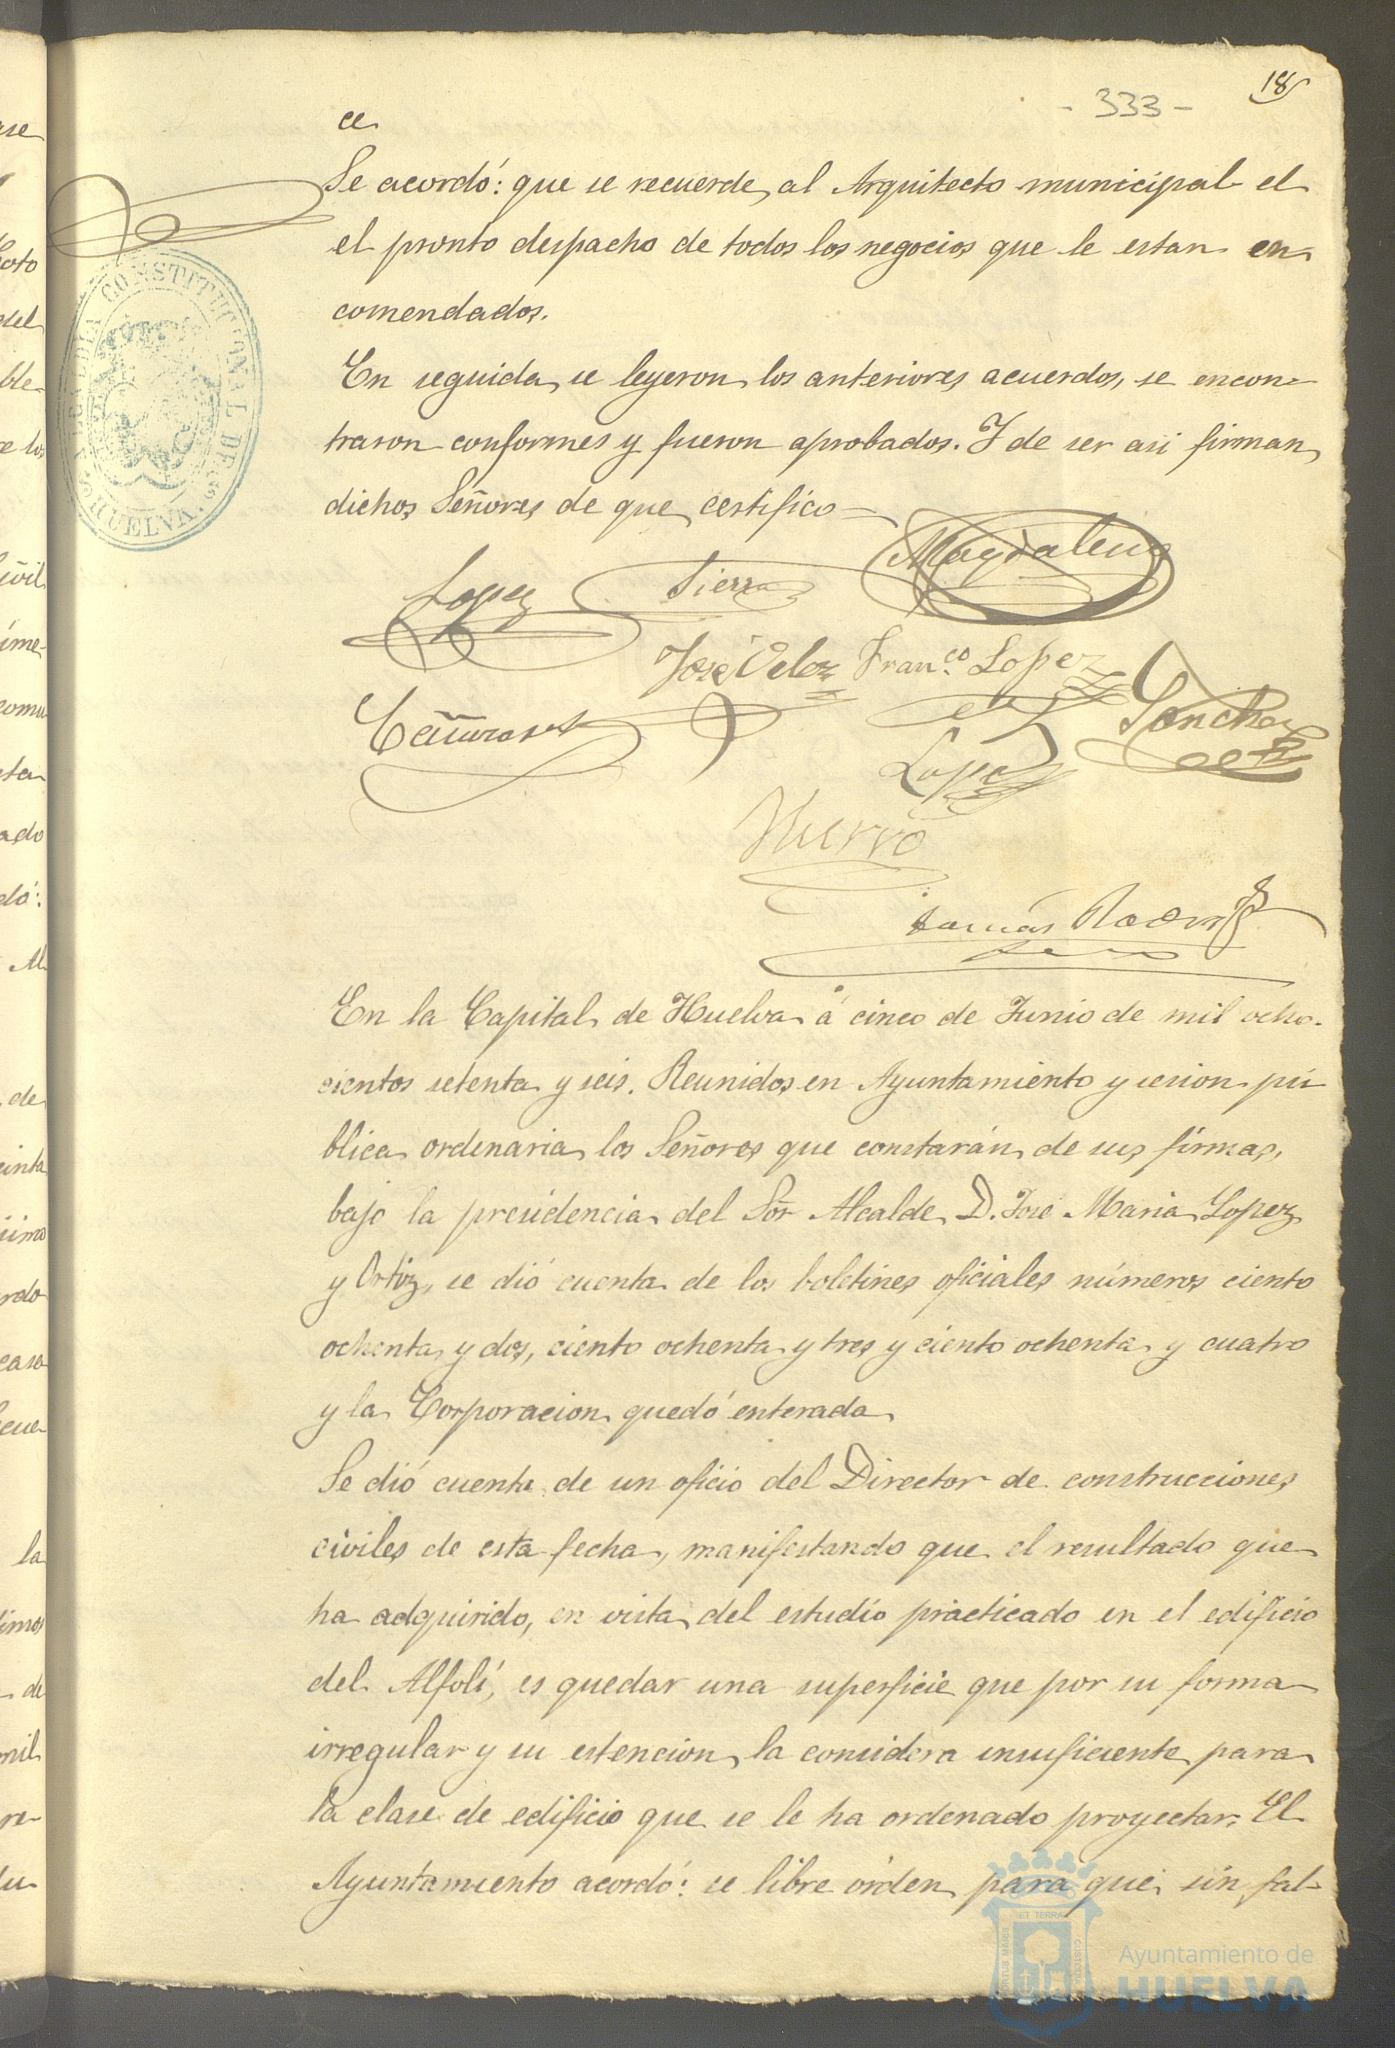 18
- 333 -
ce
Se acordó: que se recuerde al Arquitecto municipal el
el pronto despacho de todos los negocios que le estan en-
comendados.
En seguida se leyeron los anteriores acuerdos, se encon-
traron conformes y fueron aprobados. Y de ser asi firman
dichos Señores de que certifico =
Lopez Sierra Magdalena
José Veloz Fran.co Lopez
Sanchez
Lopez
Tomás
En la Capital de Huelva á cinco de Junio de mil ocho-
cientos setenta y seis. Reunidos en Ayuntamiento y sesion pú
blica ordinaria los Señores que constarán de sus firmas,
bajo la presidencia del Sor Alcalde D. José Maria Lopez
y Ortiz, se dió cuenta de los boletines oficiales números ciento
ochenta y dos, ciento ochenta y tres y ciento ochenta y cuatro
y la Corporacion quedó enterada
Se dió cuenta de un oficio del Director de construcciones
civiles de esta fecha, manifestando que el resultado que
ha adquirido, en vista del estudio practicado en el edificio
del Alfolí, es quedar una superficie que por su forma
irregular y su estencion la considera insuficiente para
la clase de edificio que se le ha ordenado proyectar. El
Ayuntamiento acordó: se libre órden para que sin fal-
ALCALDIA CONSTITUCIONAL DE HUELVA.
Ayuntamiento de
HUELVA